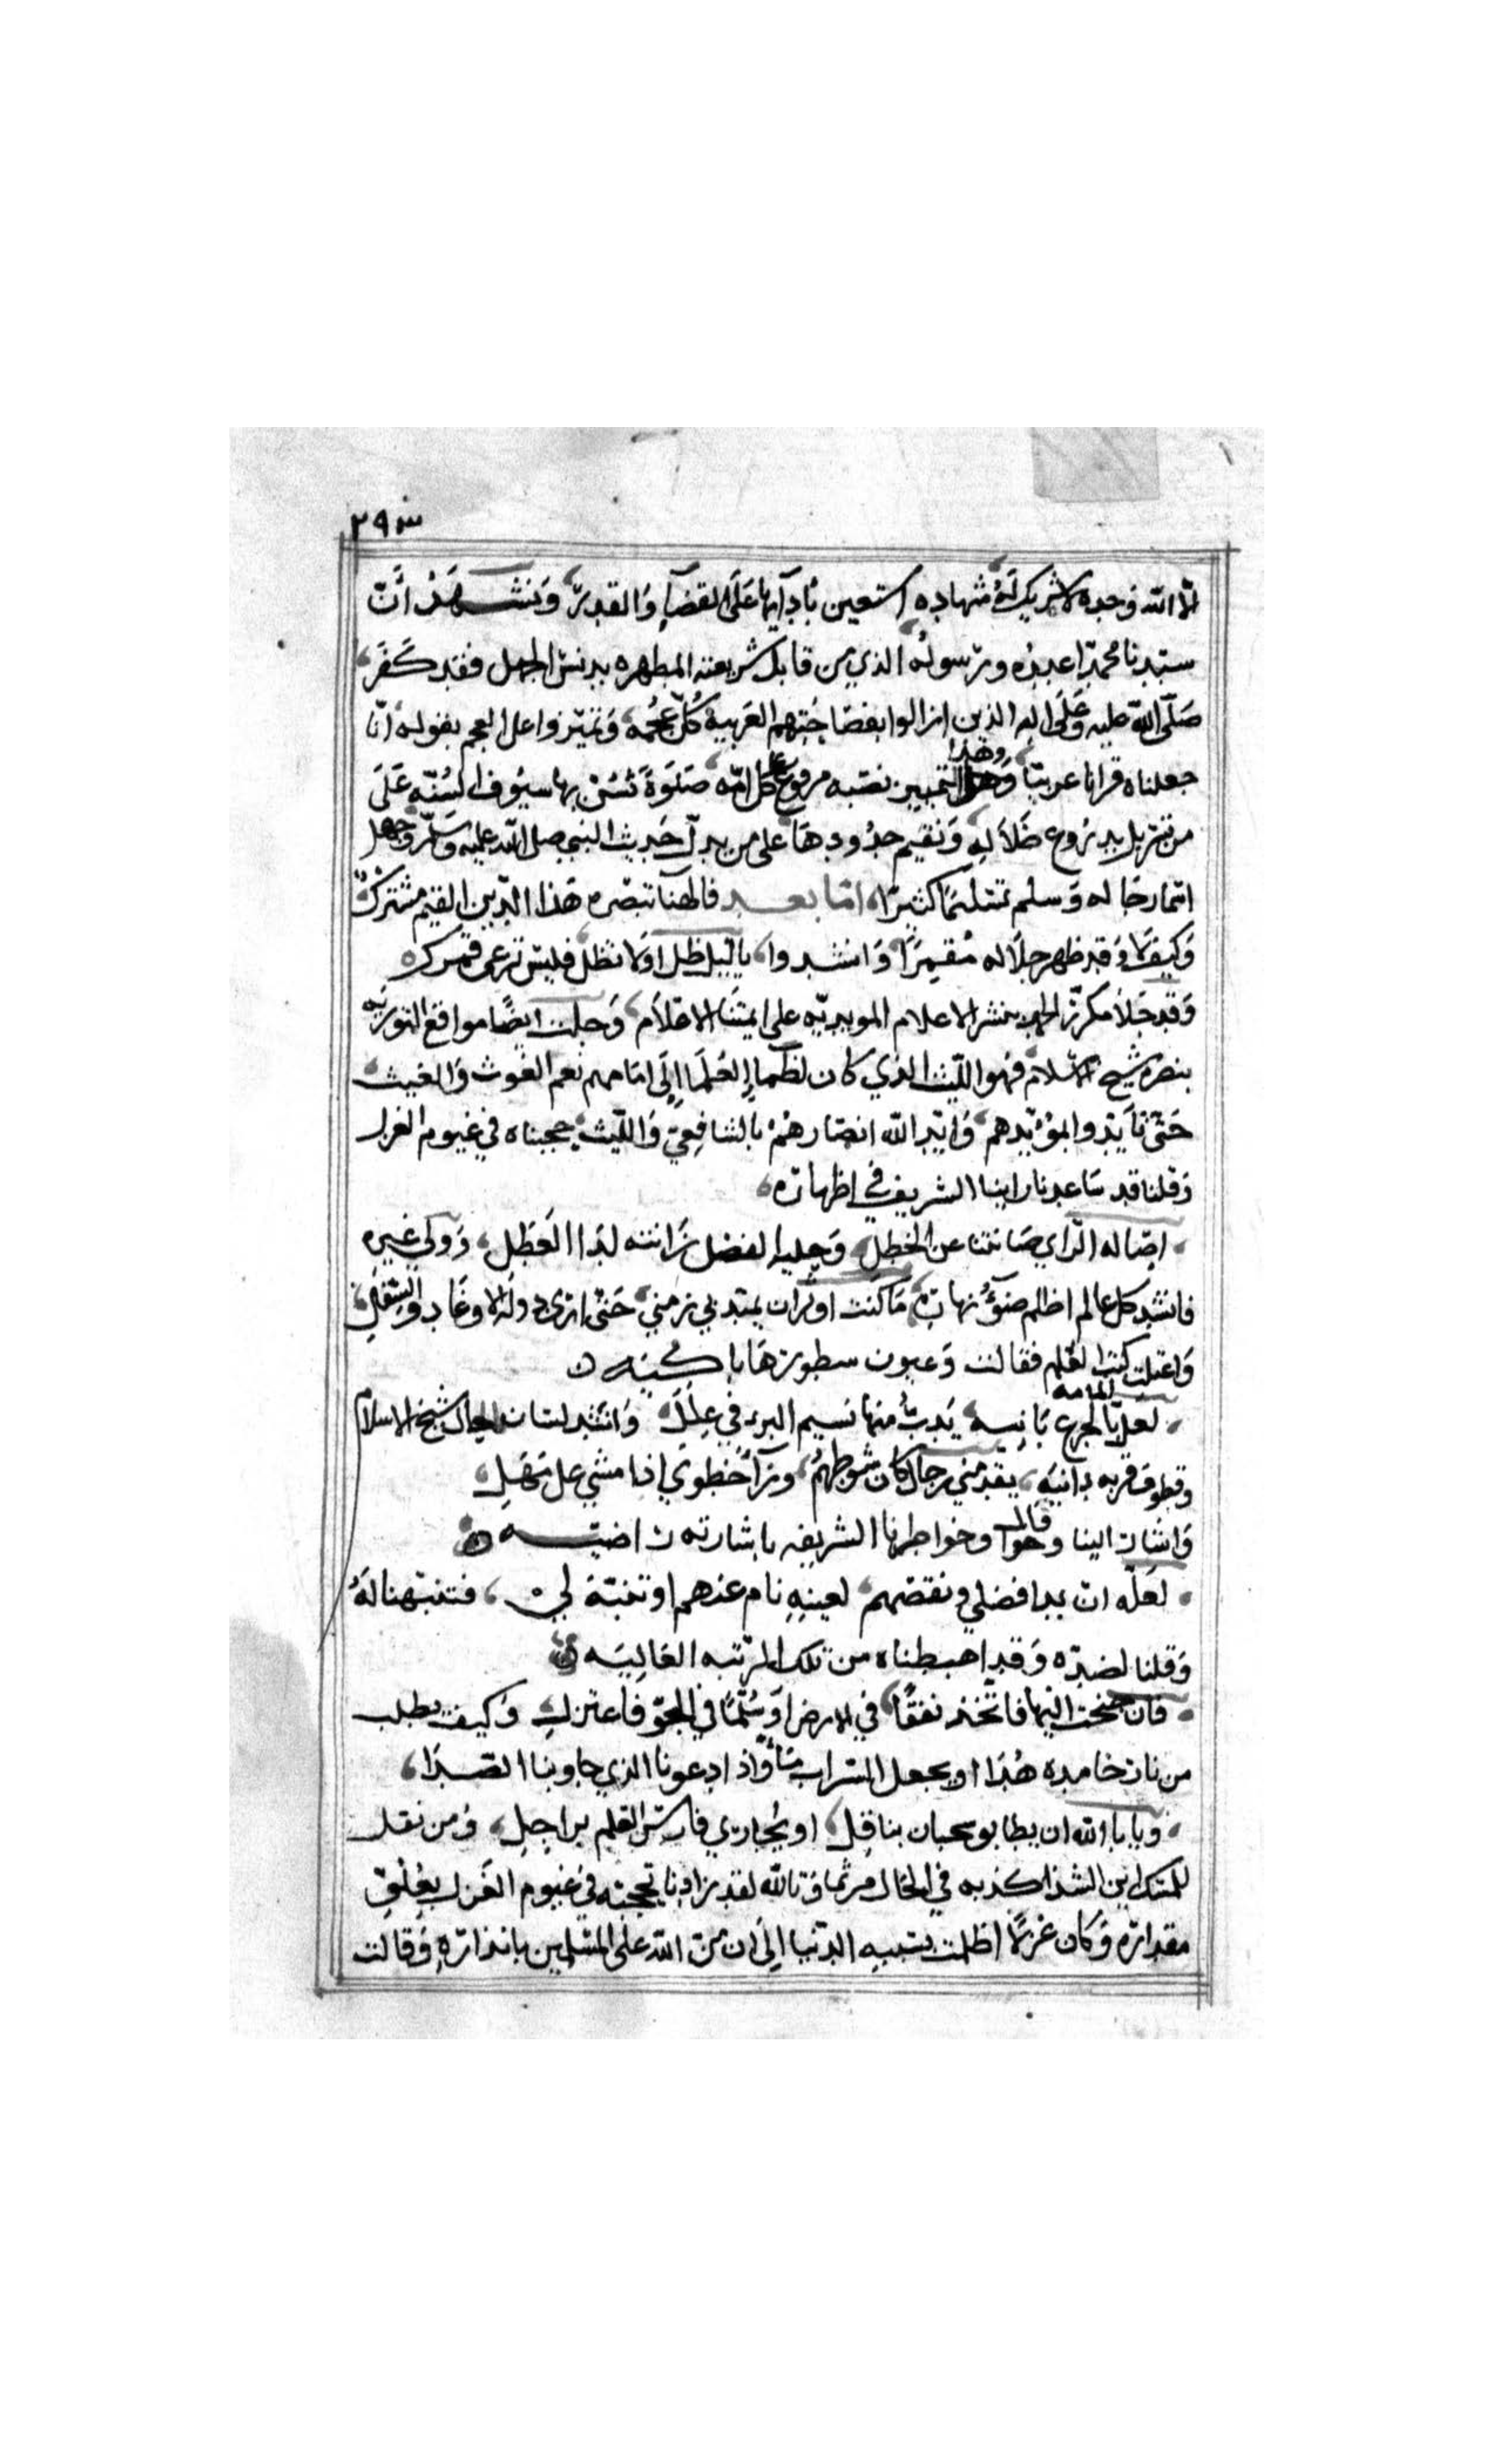 ٢٩٣
الا الله وحده لا شريك له شهاده استعين بادآيها على القضآ والقدر، ونشهد ان
سيدنا محمدا عبده ورسوله الذي من قابل شريعته المطهره بدنس الجهل فقد كفر،
صلى الله عليه وعلى اله الذين ازالوا بفصاحتهم العربية كل عجمه، وتميزوا على العجم بقوله انا
جعلناه قرانا عربيا، وهذا التمييز نصبه مرفوع على كل امه صلوة تسن بها سيوف السنه على
من تنزل بدروع ضلاله، ونقيم حدودها على من بدل حديث النبي صلى الله عليه وسلم وجهل
اسما رجاله وسلم تسليما كثيرا، اما بعد فالهنا تبصره هذا الدين القيم مشترك
وكيف لا وقد ظهر جلاله مقيمرا وانشدوا، ياليل طل او لا تطل فليس ترعى قمرك
وقد جلا مكرر الحمد بنشر الاعلام المويديه على ايمتنا الاعلام، وحلت ايضا مواقع التوريه
بنصره شيخ الاسلام فهو الليث الذي كان لظما العلما الى امامهم نعم الغوث والغيث،
حتى تايدوا بمؤيدهم، وايد الله انصارهم بالشافعي والليث، حجبناه في غيوم العزل
وقلنا قد ساعدنا راينا الشريف في اظهاره،
، اصاله الراي صانتنا عن الخطل، وحليه الفضل زانته لدا العطل، وولي غيره
فانشد كل عالم اظلم ضوء نهاره، ما كنت اوثر ان يمتد بي زمني، حتى ارى دولة الاوغاد والسفل،
واعتلت كتب العلم فقالت وعيون سطورها باكيه ن
، لعل المامه بالجزع ثانيه، يدب منها نسيم البرء في علل، وانشد لسان الحال شيخ الاسلام
وقطوف قربه دانيه، تقدمني رجال كان شوطهم، ورآ خطوي اذا مشي على مهل،
واشار الينا وقال وخواطرنا الشريفه باشارته راضيه ن
، لعله ان بدا فضلي ونقصهم، لعينه نام عنهم او تنبه لي، فتنبهنا له
وقلنا لضده وقد اهبطناه من تلك المرتبه العاليه ن
، فان جنحت اليها فاتخذ نفقا، في الارض او سلما في الجو فاعتزل، وكيف يطلب
من نار خامده هدا او يجعل السراب مآ واذا دعونا الذي جاوبنا الصدا،
، ويابا الله ان يطابق سحبان بناقل، او يجاري فارس القلم براجل، ومن نقل
للمسك اين الشذا كذبه في الحال فتالله لقد زادنا تحجبه في غيوم العزل بغلق
مقداره وكان عزلا اظلمت بسببه الدنيا الى ان من الله على المسلمين بانذاره وقالت